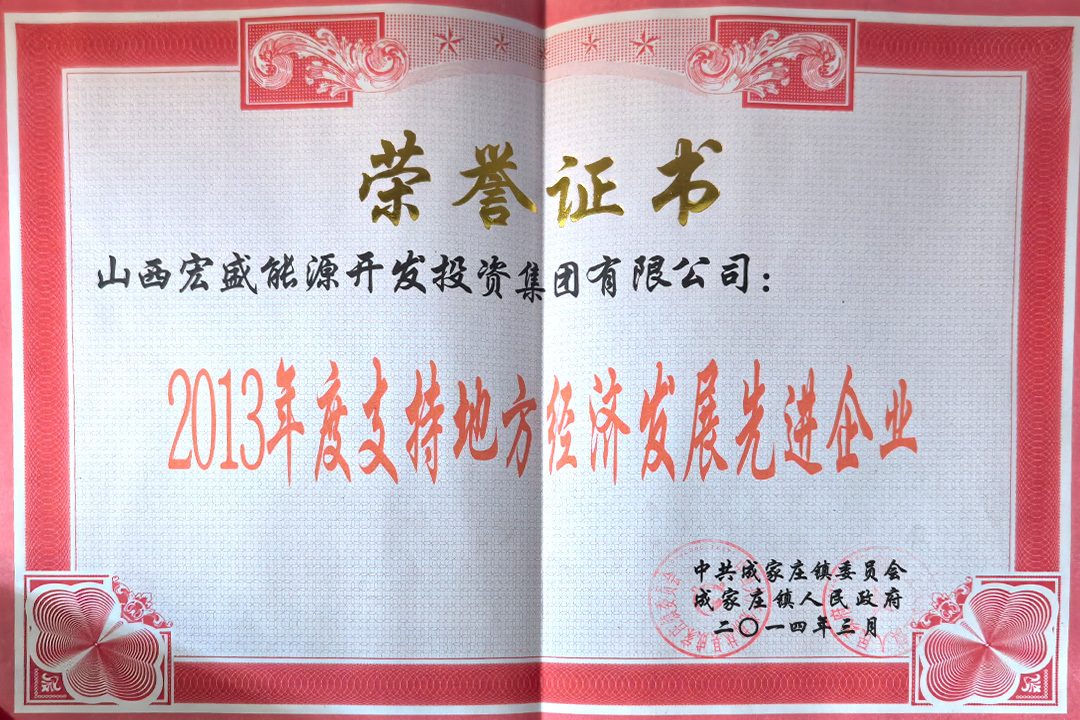 荣誉证书
山西宏盛能源开发投资集团有限公司：
2013年度支持地方经济发展先进企业
中共成家庄镇委员会
成家庄镇人民政府
二〇一四年三月